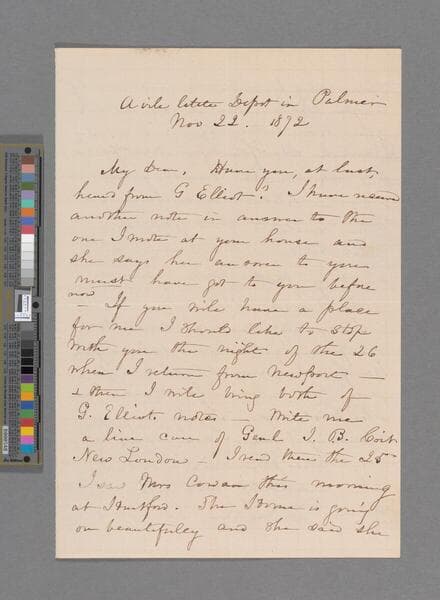 A vile little Depot in Palmer
Nov 22. 1872
My Dear, Have you, at last,
heard from G Elliot? I have
another note in answer to the
one I wrote at your house and
she says her answer to you
must have got to you before
now
— If you will have a place
for me I should like to stop
with you the night of the 26
when I return from Newport —
& then I will bring both of
G. Elliots notes — Write me
a line care of Genl J. B. Coit
New London — I read there the 25
I saw Mrs Cowan this morning
at Hartford. The Home is going
on beautifully and she said she